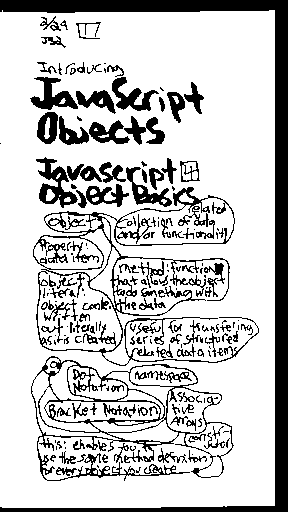 2/24
JS2
Introducing
JavaScript
Objects
Javascript
Object Basics
Object:
related
collection of data
and/or functionality
Property:
data item
method: function
that allows the object
to do something with
the data
object
literal:
object code
written
out literally
as it is created
Useful for transfering
series of structured
related data items
Dot
Notation
namespace
Bracket Notation
Associa-
tive
Arrays
constr-
uctor
this: enables you to
use the same method definition
for every object you create